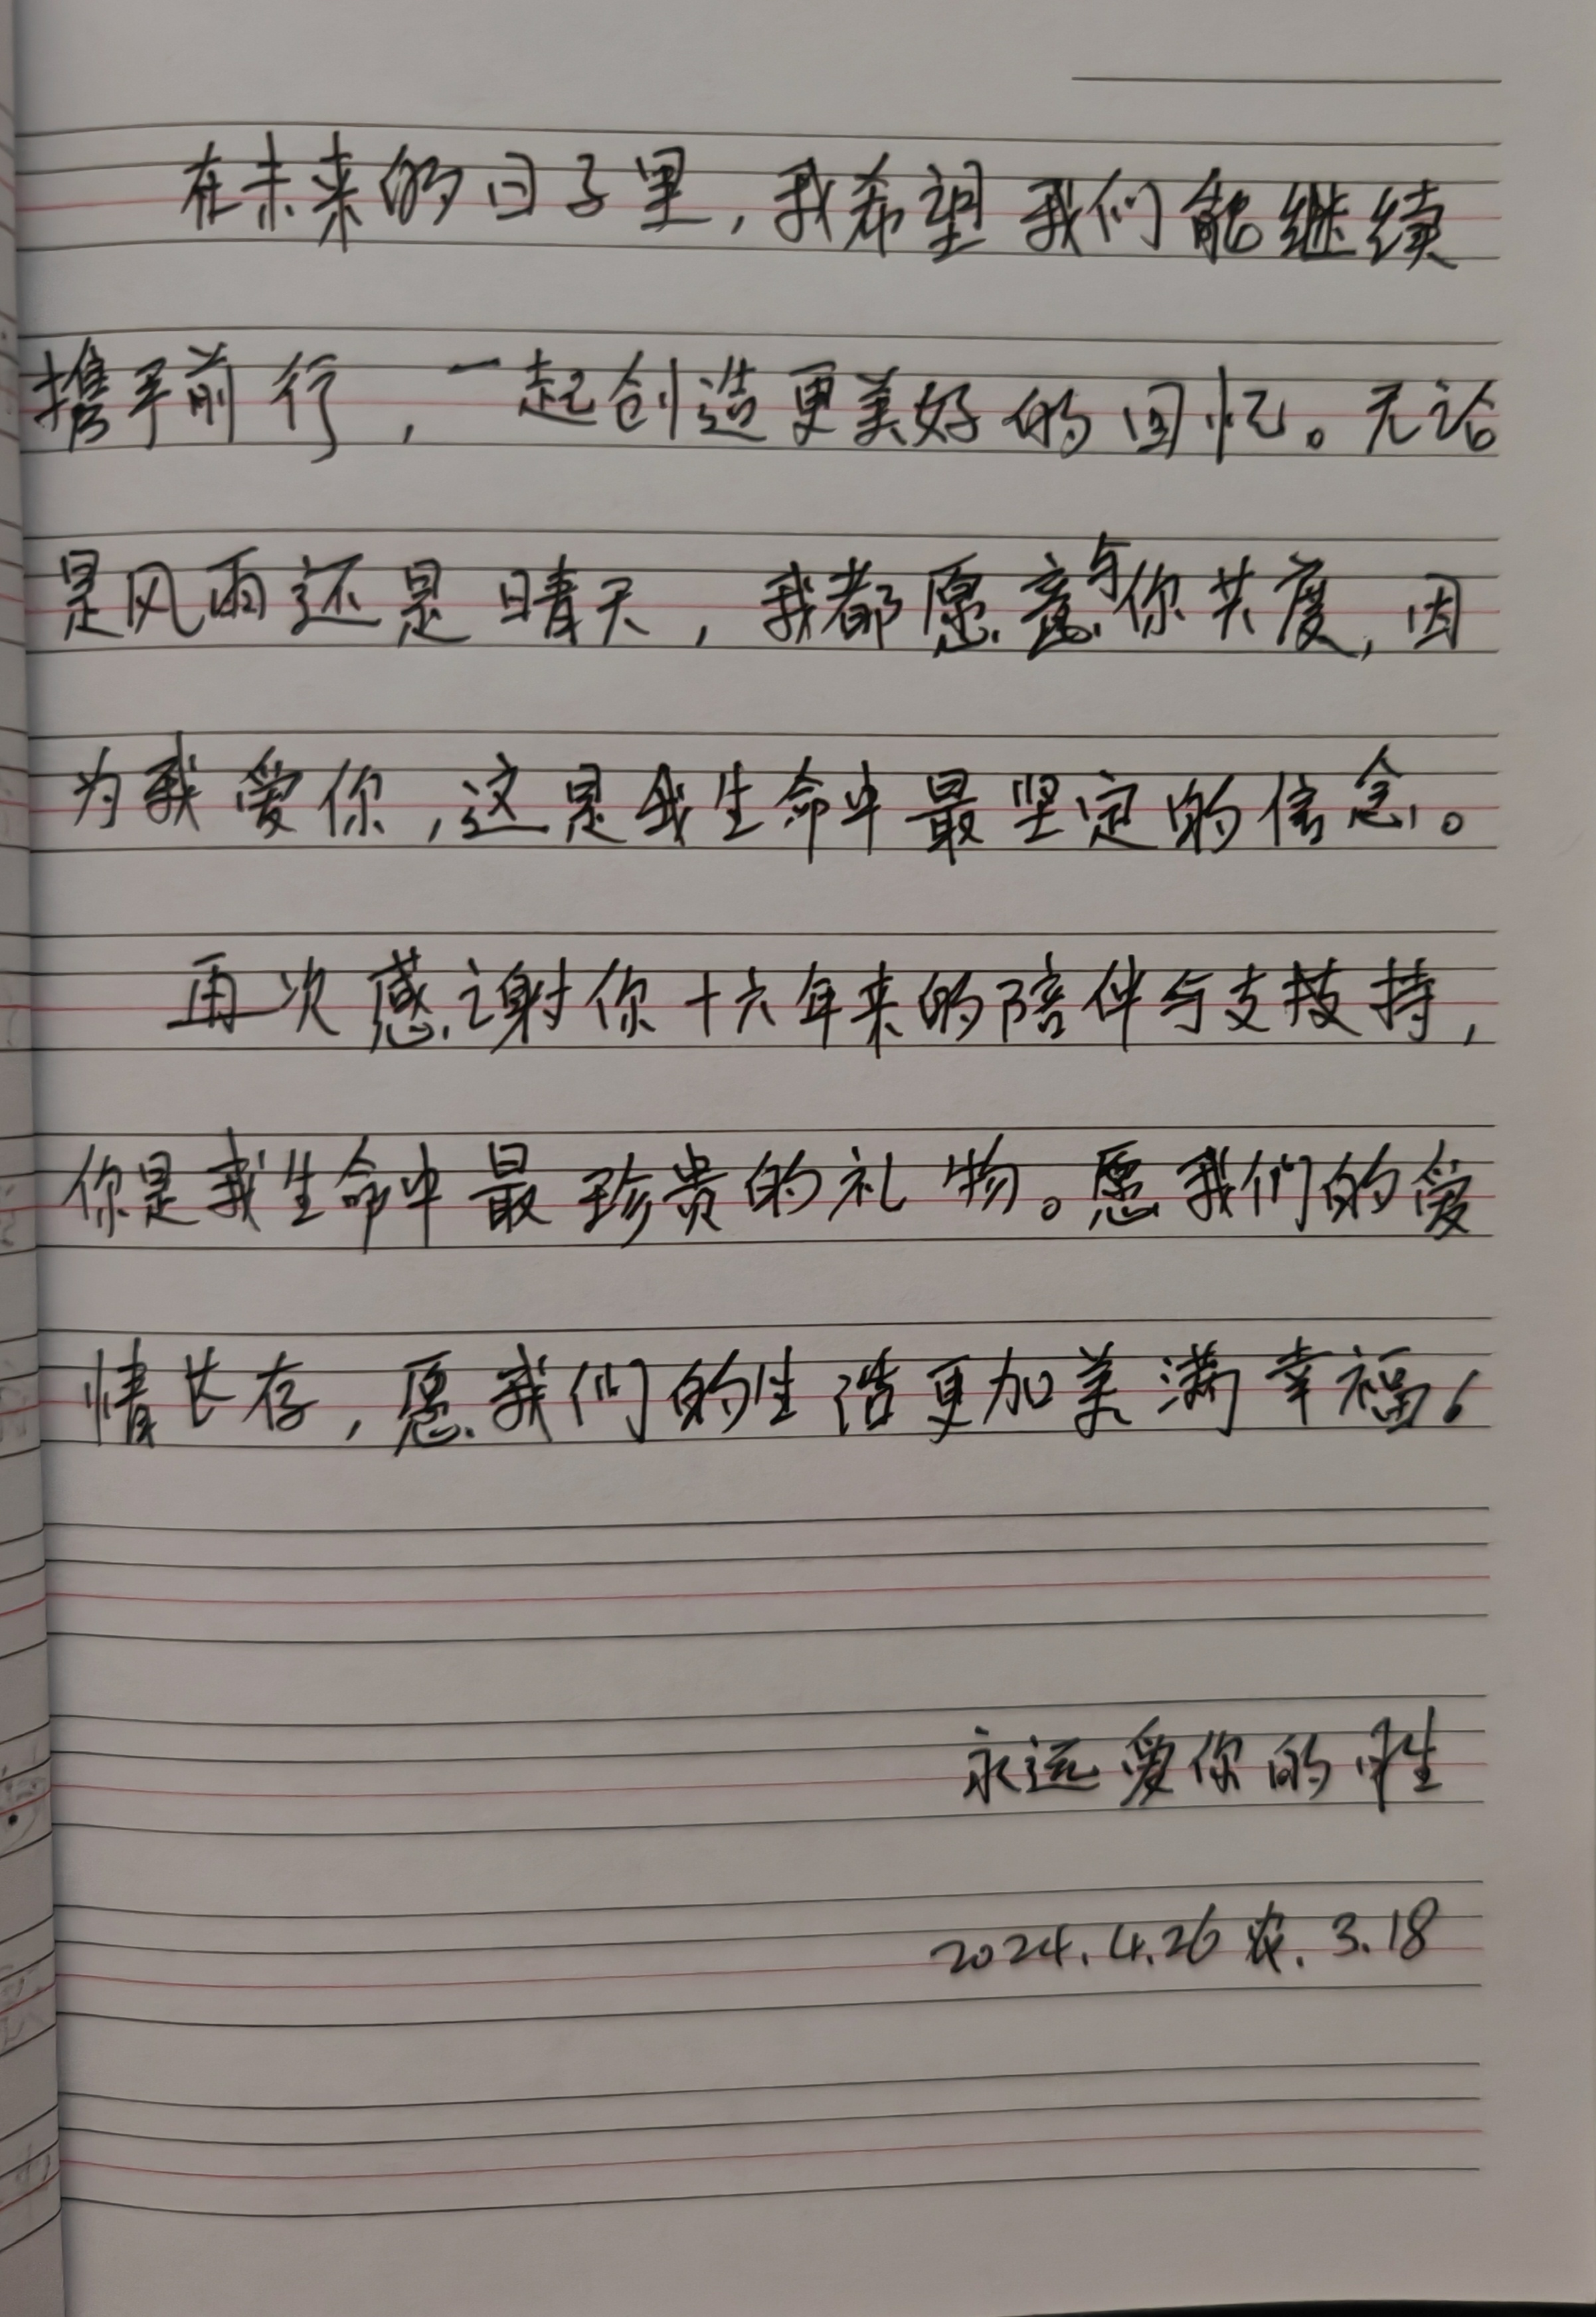 在未来的日子里，我希望我们能继续
携手前行，一起创造更美好的回忆。无论
是风雨还是晴天，我都愿意与你共度，因
为我爱你，这是我生命中最坚定的信念。
再次感谢你十六年来的陪伴与支技持，
你是我生命中最珍贵的礼物。愿我们的爱
情长存，愿我们的生活更加美满幸福！
永远爱你的
2024.4.26 农.3.18